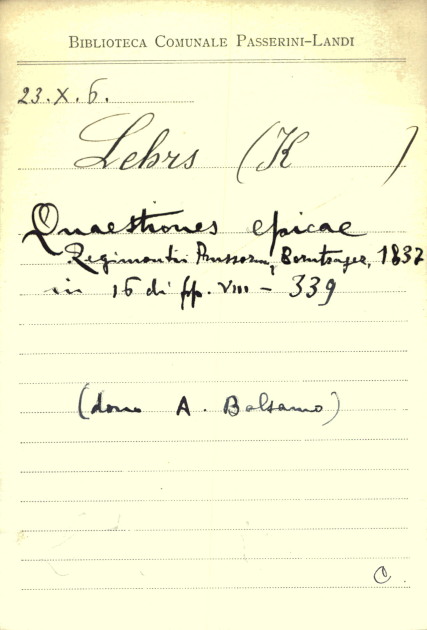 BIBLIOTECA COMUNALE PASSERINI-LANDI
23.X.6.
Lehrs (K )
Quaestiones epicae
Regimontii Prussorum, Borntrager, 1837
in 16 di pp. VIII - 339
(dono A. Balsamo)
C.